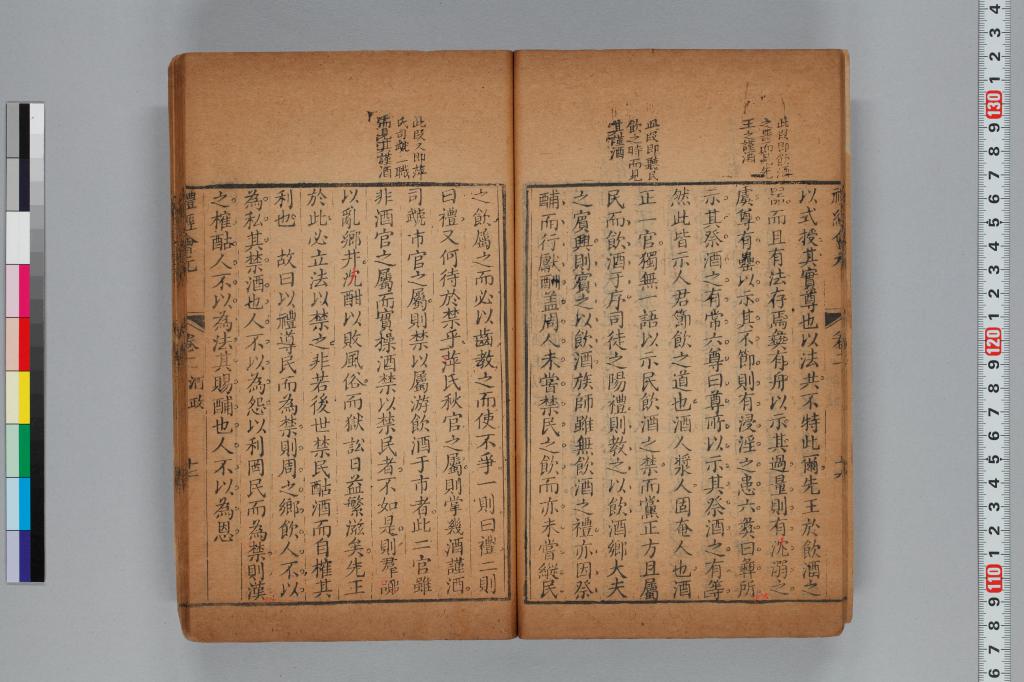 此段即飲酒
之器而見先
王之謹酒
此段即聽民
飲之時而見
其謹酒
以式授其實尊也以法共不特此爾先王於飲酒之
器而且有法存焉彝有舟以示其過量則有沈溺之
虞尊有罍以示其不節則有浸淫之患六彝曰彝所
示其祭酒之有常六尊曰尊所以示其祭酒之有等
然此皆示人君節飲之道也酒人漿人固奄人也酒
正一官獨無一語以示民飲酒之禁而黨正方且屬
民而飲酒于序司徒之陽禮則教之以飲酒鄉大夫
之賓興則賓之以飲酒族師雖無飲酒之禮亦因祭
酺而行獻酬盖周人未嘗禁民之飲而亦未嘗縱民
此段又即萍
氏司虣一職
而見其謹酒
之飲屬之而必以齒教之而使不爭一則曰禮二則
曰禮又何待於禁乎萍氏秋官之屬則掌幾酒謹酒
司虣市官之屬則禁以屬游飲酒于市者此二官雖
非酒官之屬而實操酒禁以禁民者不如是則羣飲
以亂鄉井沈酣以敗風俗而獄訟日益繁滋矣先王
於此必立法以禁之非若後世禁民酤酒而自榷其
利也　故曰以禮導民而為禁則周之鄉飲人不以
為私其禁酒也人不以為怨以利罔民而為禁則漢
之榷酤人不以為法其賜酺也人不以為恩
禮經會元
卷一 酒政
十二